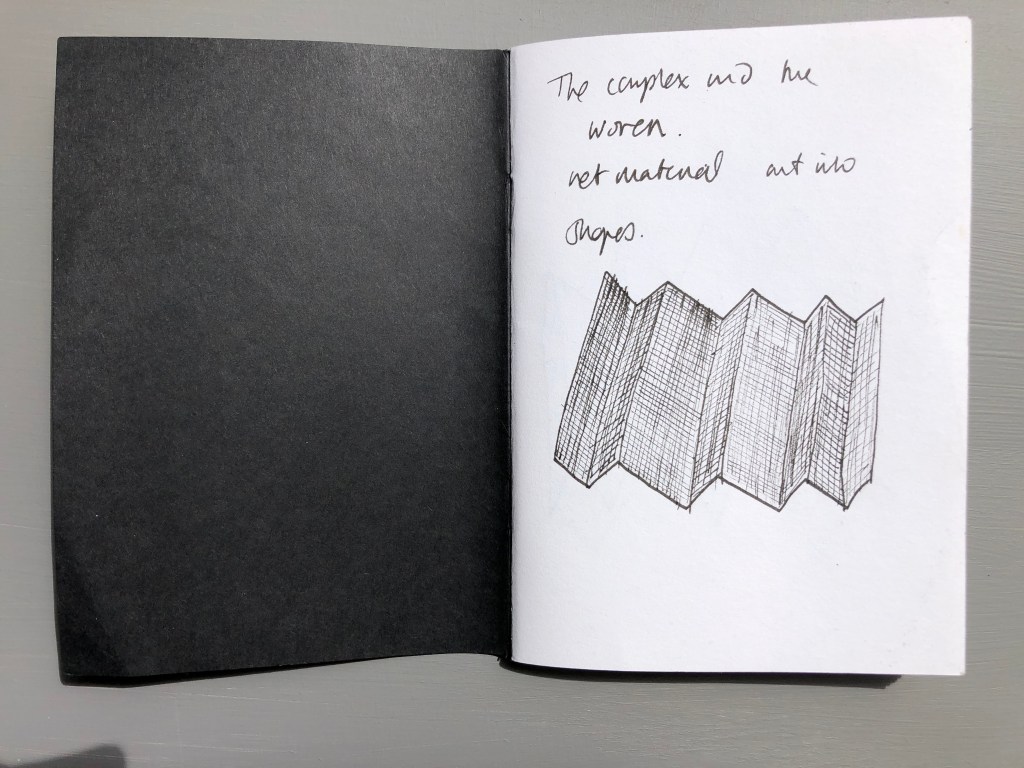 The complex and the
woven.
net material cut into
shapes.